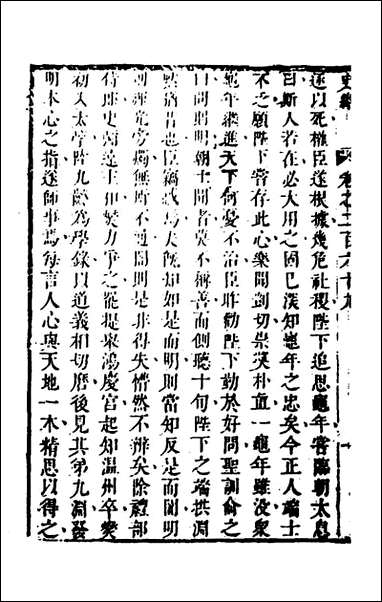 遂以死權臣遂根據幾危社稷陛下追思龜年嘗臨朝太息
曰斯人若在必大用之固已深知龜年之忠矣今正人端士
不乏願陛下嘗存此心樂聞剴切崇奬朴直一龜年雖沒衆
龜年繼進天下何憂不治臣昨勸陛下勤於好問聖訓俞之
曰問則明朝士聞者莫不稱善而側聽十旬陛下之端拱淵
默猶昔也臣竊惑焉夫旣知如是而明則當知反是而闇明
則輝光旁燭無所不通闇則是非得失懵然不辨矣除禮部
侍郎史彌遠主和燮力爭之罷提舉鴻慶宮起知温州卒燮
初入太學陸九齡為學錄以道義相切磨後見其弟九淵發
明本心之指遂師事焉每言人心與天地一本精思以得之
史緯 卷之二百六十九